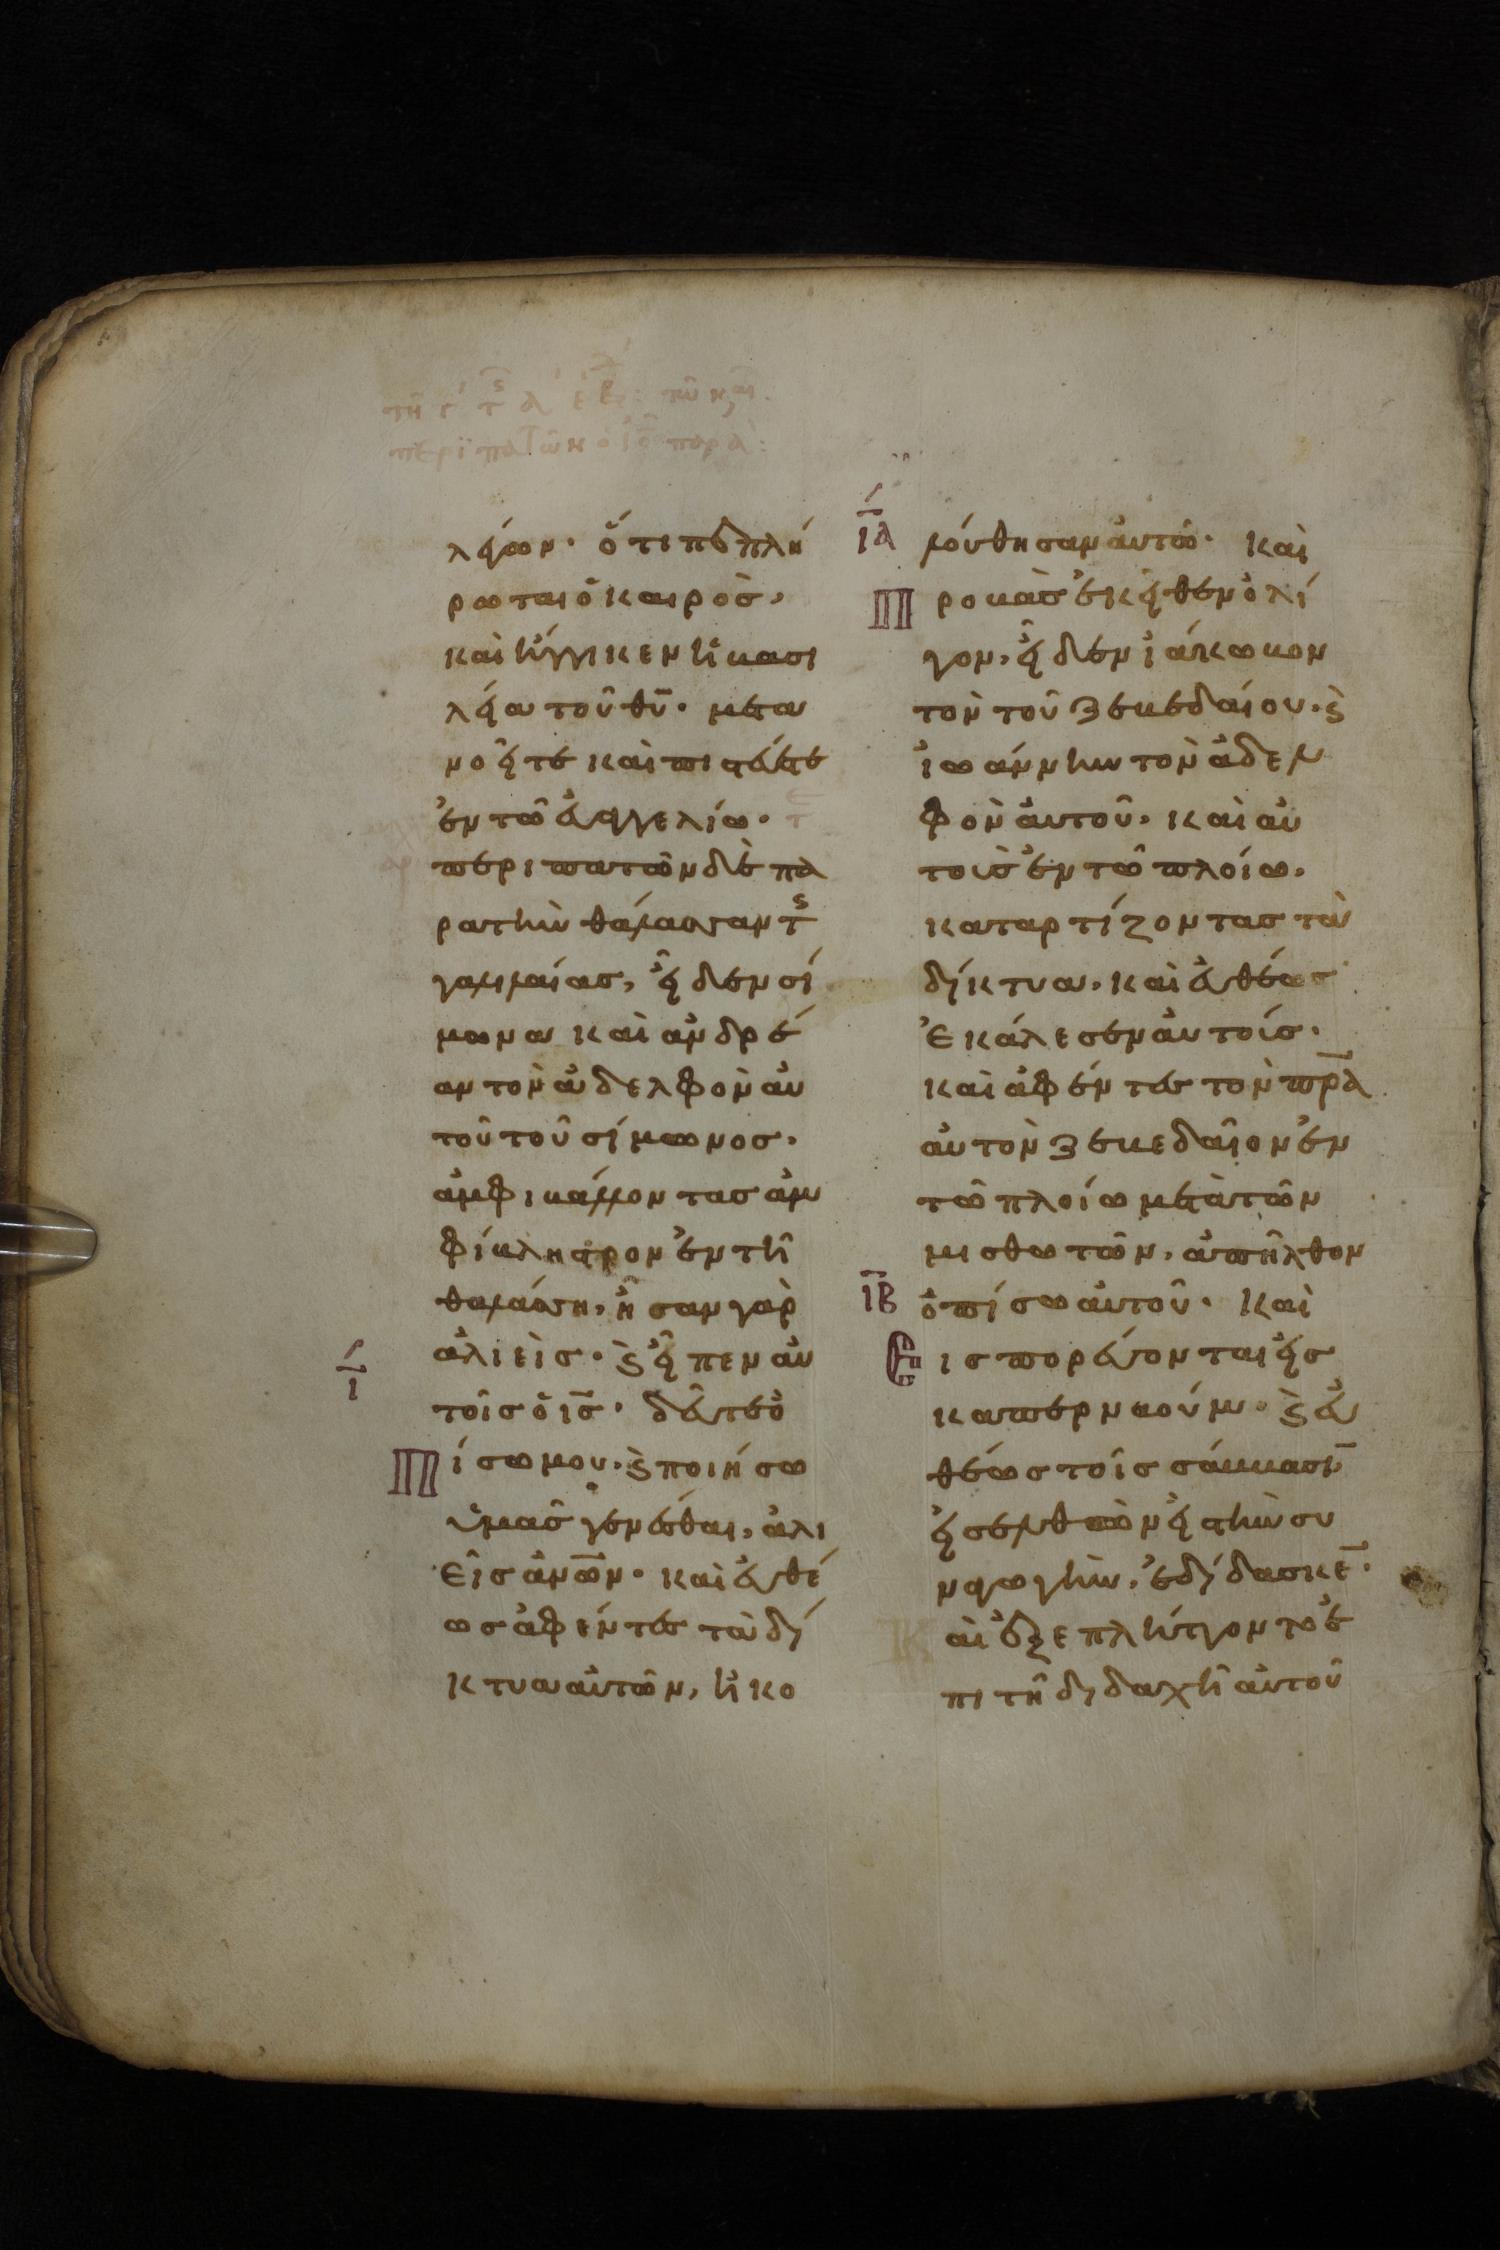 λέγων· ὅτι πεπλή
ρωται ὁ καιρὸσ,
καὶ ἤγγικεν ἡ βασι
λεία τοῦ θῡ· μετα
νοεῖτε καὶ πιστεύετε
ἐν τῶ εὐαγγελίω·
περιπατῶν δὲ πα
ρα τὴν θάλασσαν τῆς
γαλιλαίασ, εἶδεν σί
μωνα καὶ ἀνδρέ
αν τὸν ἀδελφὸν αὐ
τοῦ τοῦ σίμωνοσ,
ἀμφιβάλλοντασ ἀμ
φίβληστρον ἐν τῆ
θαλάσση, ἦσαν γὰρ
ἁλιεῖσ· ϗ εἶπεν αὐ
τοῖσ ὁ ι̅σ̅· δεῦτε ὀ
Πίσω μου· ϗ ποιήσω
ὑμᾶσ γενέσθαι, ἁλι
εῖσ ἀν̅ω̅ν· καὶ εὐθέ
ωσ ἀφέντεσ τὰ δί
κτυα αὐτῶν, ἠκο
ΙΑ
λούθησαν αὐτῶ· Καὶ
Προβὰσ ἐκεῖθεν ὀλί
γον, εἶδεν ἰάκωβον
τὸν τοῦ ζεβεδαίου· ϗ
ἰωάννην τὸν ἀδελ
φὸν αὐτοῦ· καὶ αὐ
τοὺσ ἐν τῶ πλοίω,
καταρτίζοντασ τὰ
δίκτυα, καὶ εὐθέωσ
ἐκάλεσεν αὐτούσ·
καὶ ἀφέντεσ τὸν π̅ρ̅α
αὐτὸν ζεβεδαῖον ἐν
τῶ πλοίω μετὰ τῶν
μισθωτῶν, ἀπῆλθον
ΙΒ
ὀπίσω αὐτοῦ· Καὶ
Εἰσπορεύονται εἰσ
καπερναούμ· ϗ εὐ
θέωσ τοῖσ σάββασῑ
εἰσελθὼν εἰσ τὴν συ
ναγωγὴν, ἐδίδασκε̅·
Καὶ ἐξεπλήττοντο ἐ
πὶ τῆ διδαχῆ αὐτοῦ